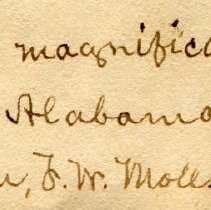 magnific
Alabama
, F. W. Moll